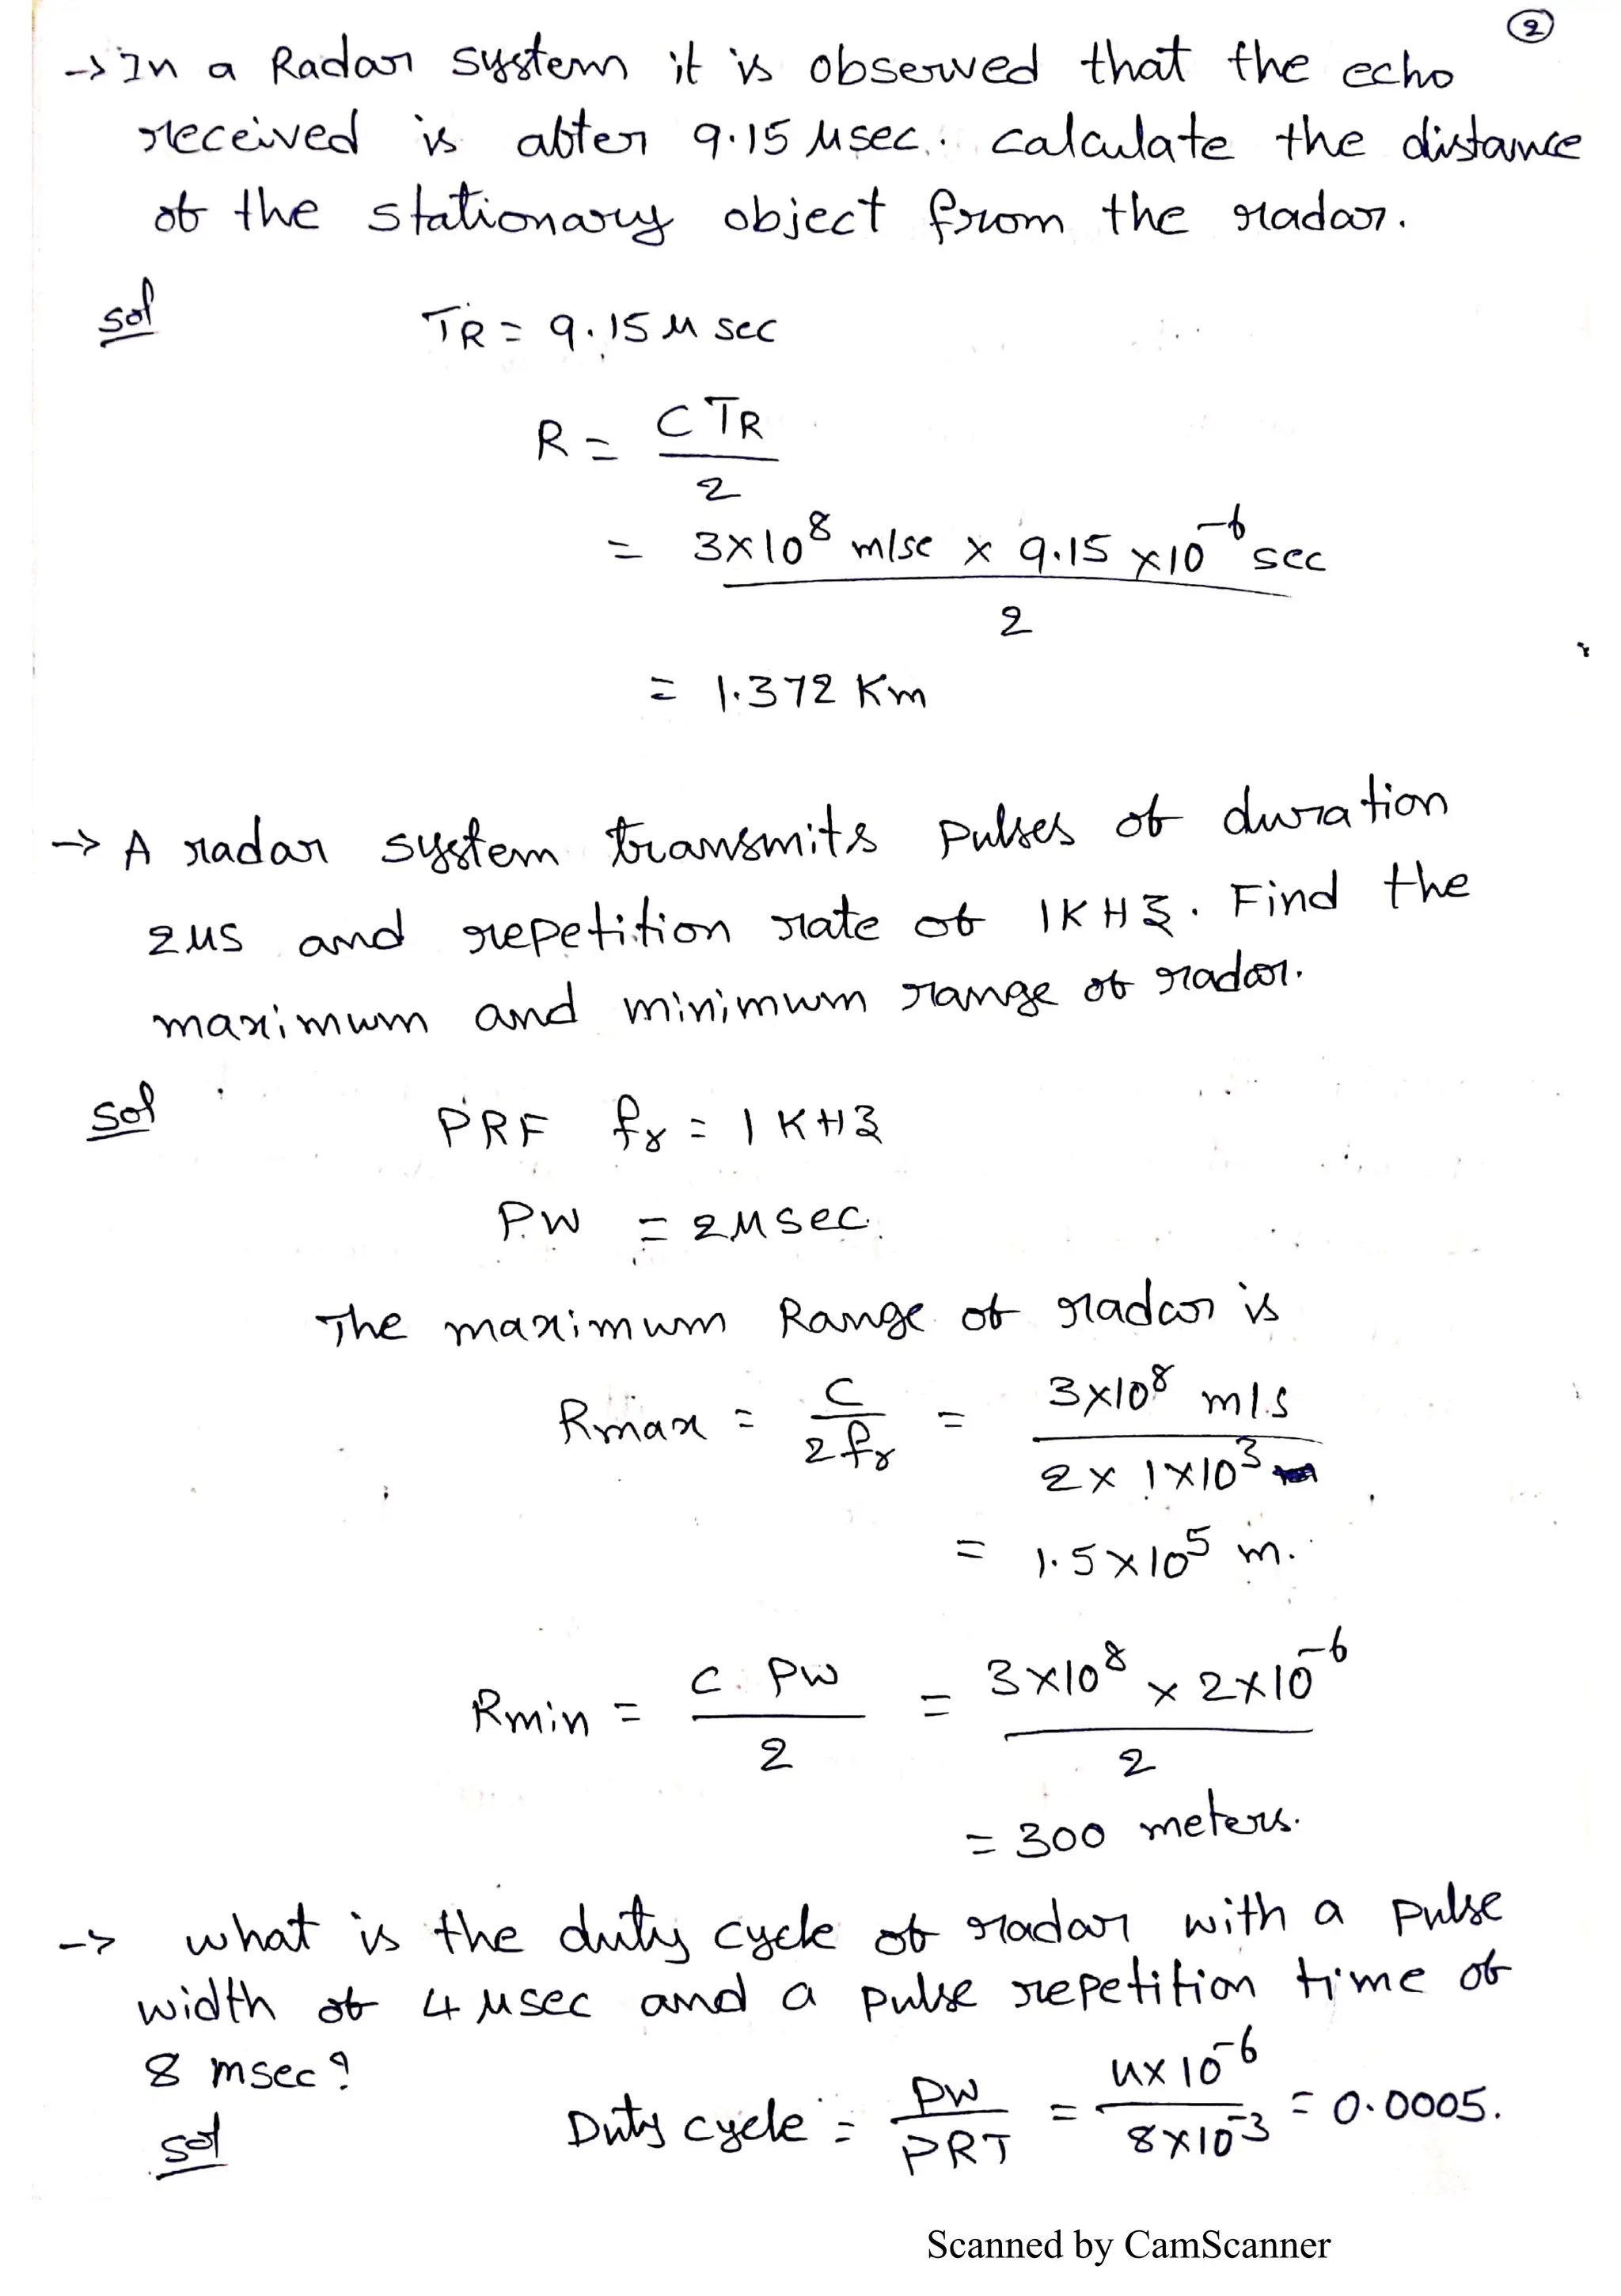 ②
→ In a Radar system it is observed that the echo
received is after 9.15 μsec. calculate the distance
of the stationary object from the radar.
sol
TR = 9.15 μ sec
R = C TR / 2
= 3×10⁸ m/se × 9.15 ×10⁻⁶ sec / 2
= 1.372 Km
→ A radar system transmits pulses of duration
2μs and repetition rate of 1KHz. Find the
maximum and minimum range of radar.
sol
PRF fr = 1 KHz
P.W = 2μsec.
The maximum Range of radar is
Rmax = C / 2fr = 3×10⁸ m/s / 2 × 1×10³
= 1.5×10⁵ m.
Rmin = C. PW / 2 = 3×10⁸ × 2×10⁻⁶ / 2
= 300 meters.
→ what is the duty cycle of radar with a pulse
width of 4 μsec and a pulse repetition time of
8 msec?
sol
Duty cycle = PW / PRT = 4×10⁻⁶ / 8×10⁻³ = 0.0005.
Scanned by CamScanner